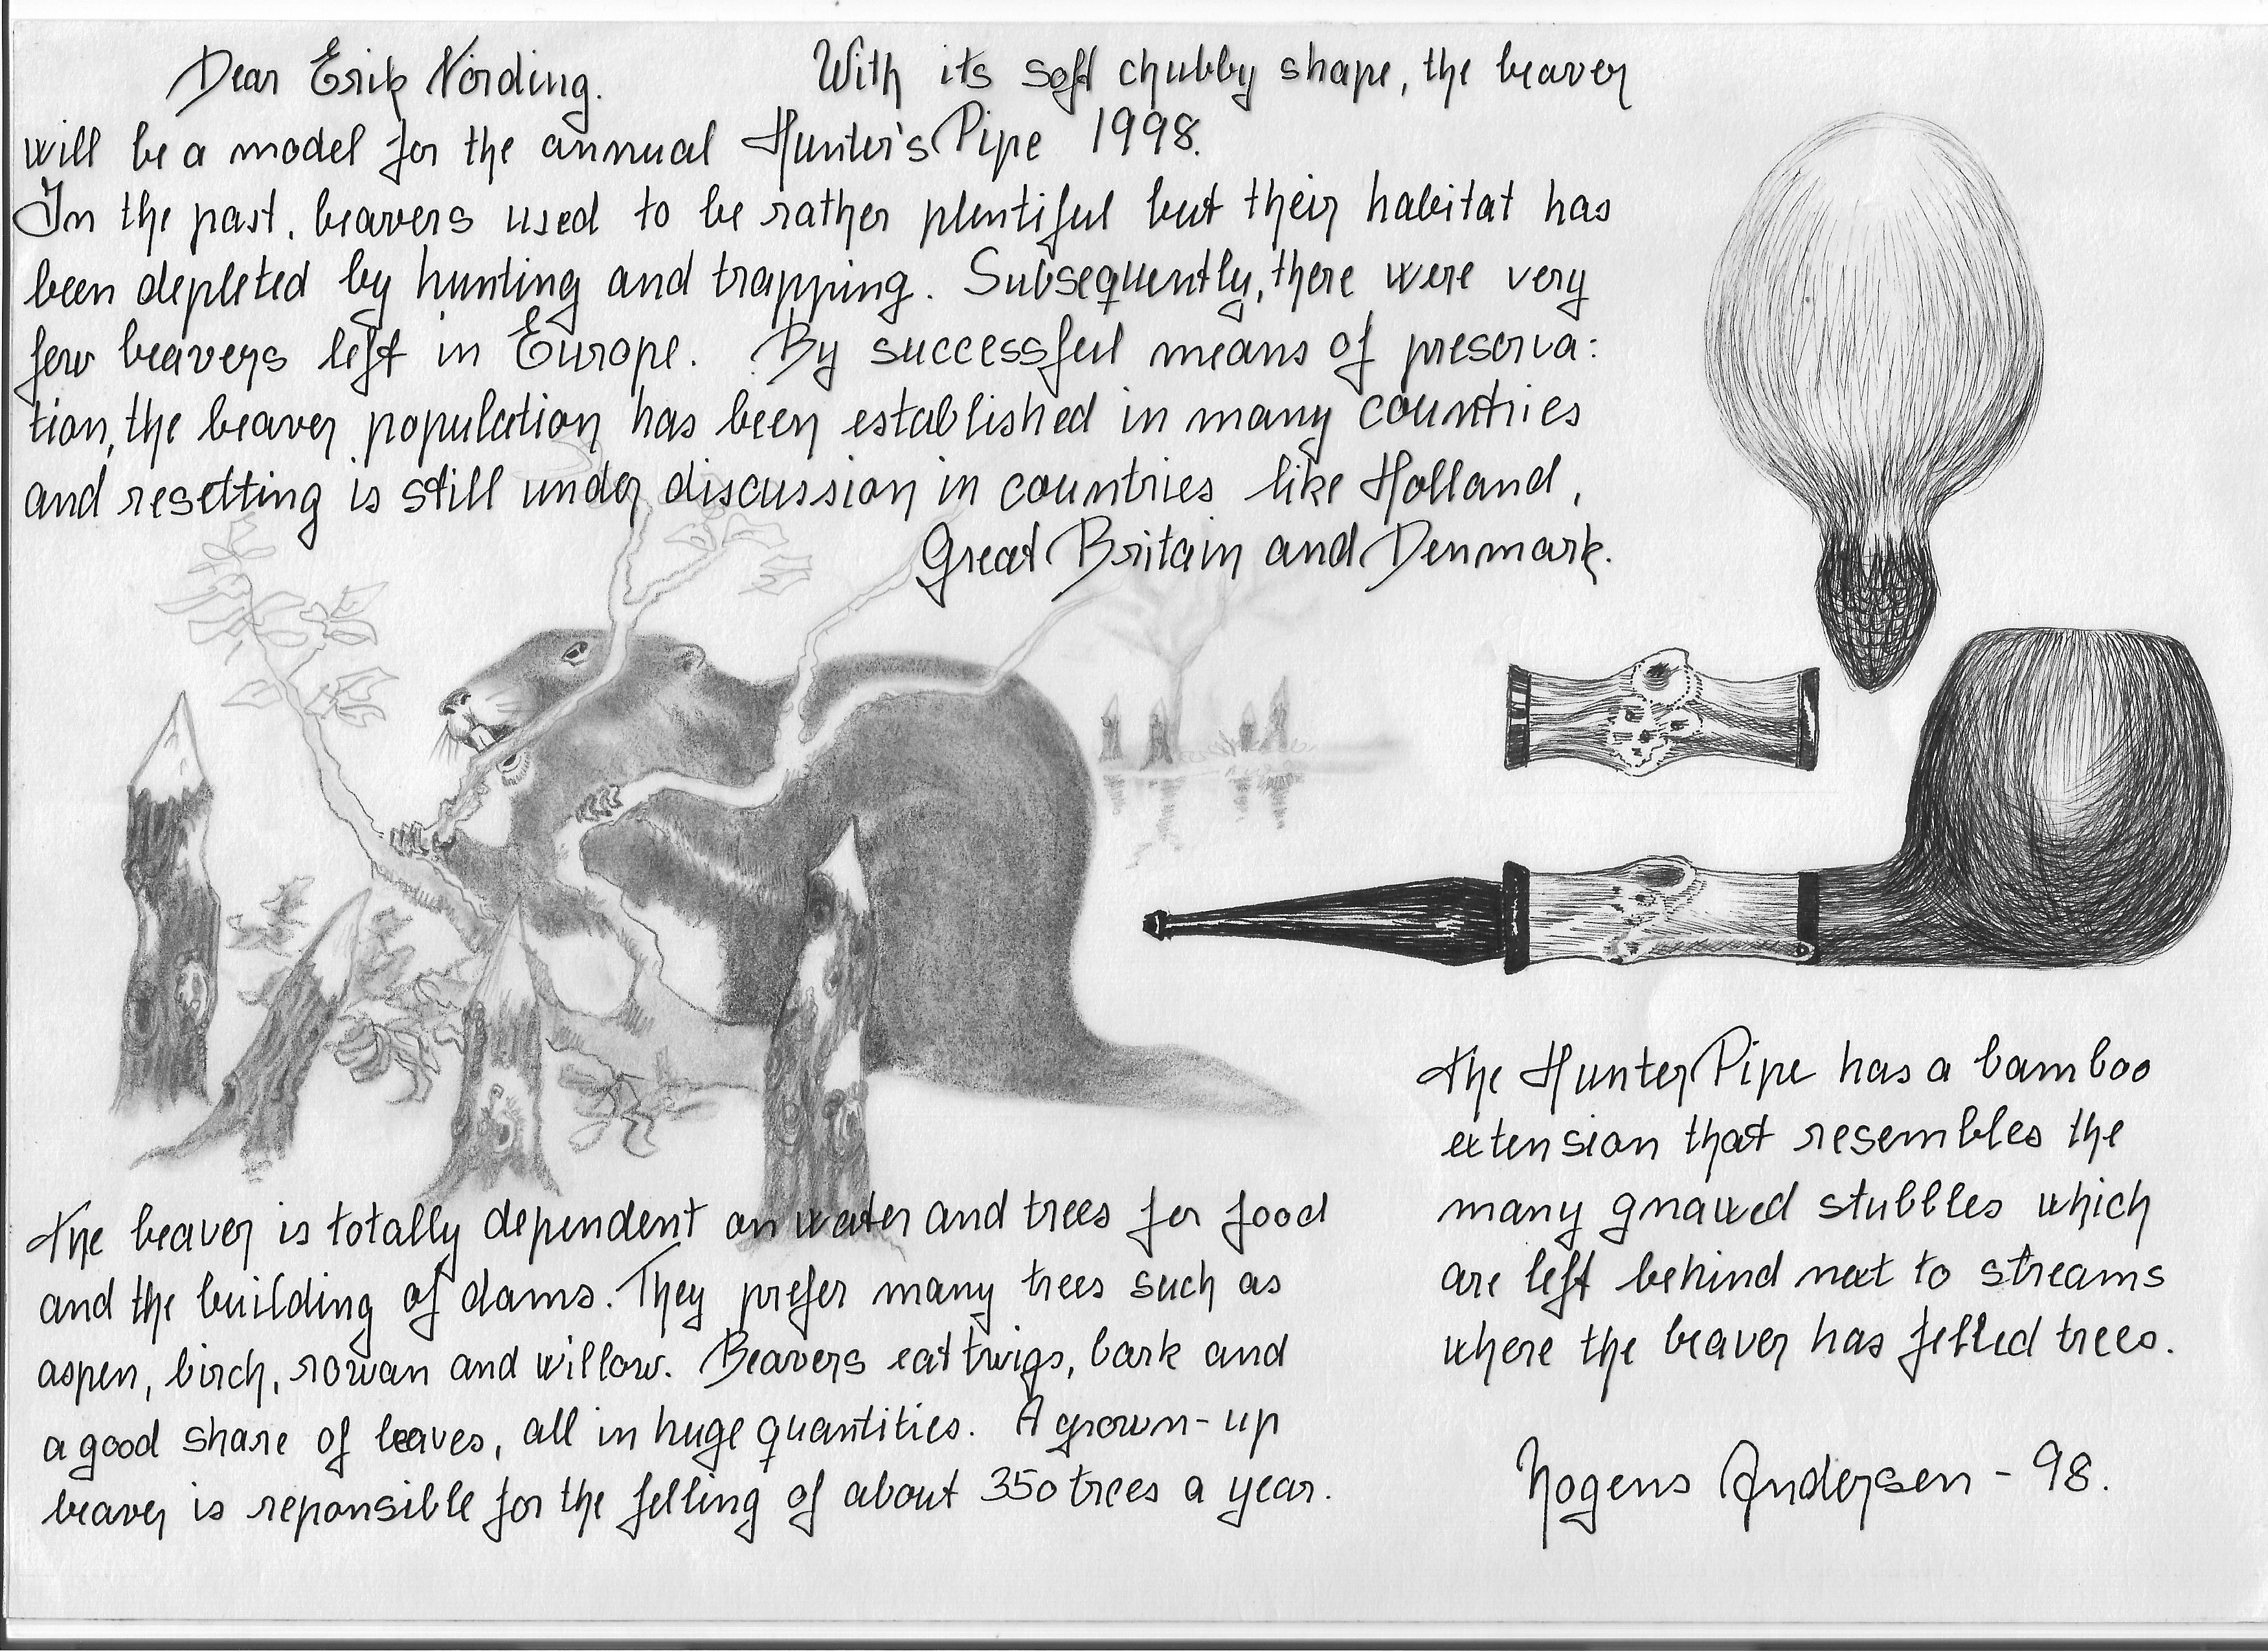 Dear Erik Nørding. With its soft chubby shape, the beaver
will be a model for the annual Hunter's Pipe 1998.
In the past, beavers used to be rather plentiful but their habitat has
been depleted by hunting and trapping. Subsequently, there were very
few beavers left in Europe. By successful means of preserva:
tion, the beaver population has been established in many countries
and resetting is still under discussion in countries like Holland,
Great Britain and Denmark.
The Hunter Pipe has a bamboo
extension that resembles the
many gnawed stubbles which
are left behind next to streams
where the beaver has felled trees.
The beaver is totally dependent on water and trees for food
and the building of dams. They prefer many trees such as
aspen, birch, rowan and willow. Beavers eat twigs, bark and
a good share of leaves, all in huge quantities. A grown-up
beaver is reponsible for the felling of about 350 trees a year.
Mogens Andersen - 98.